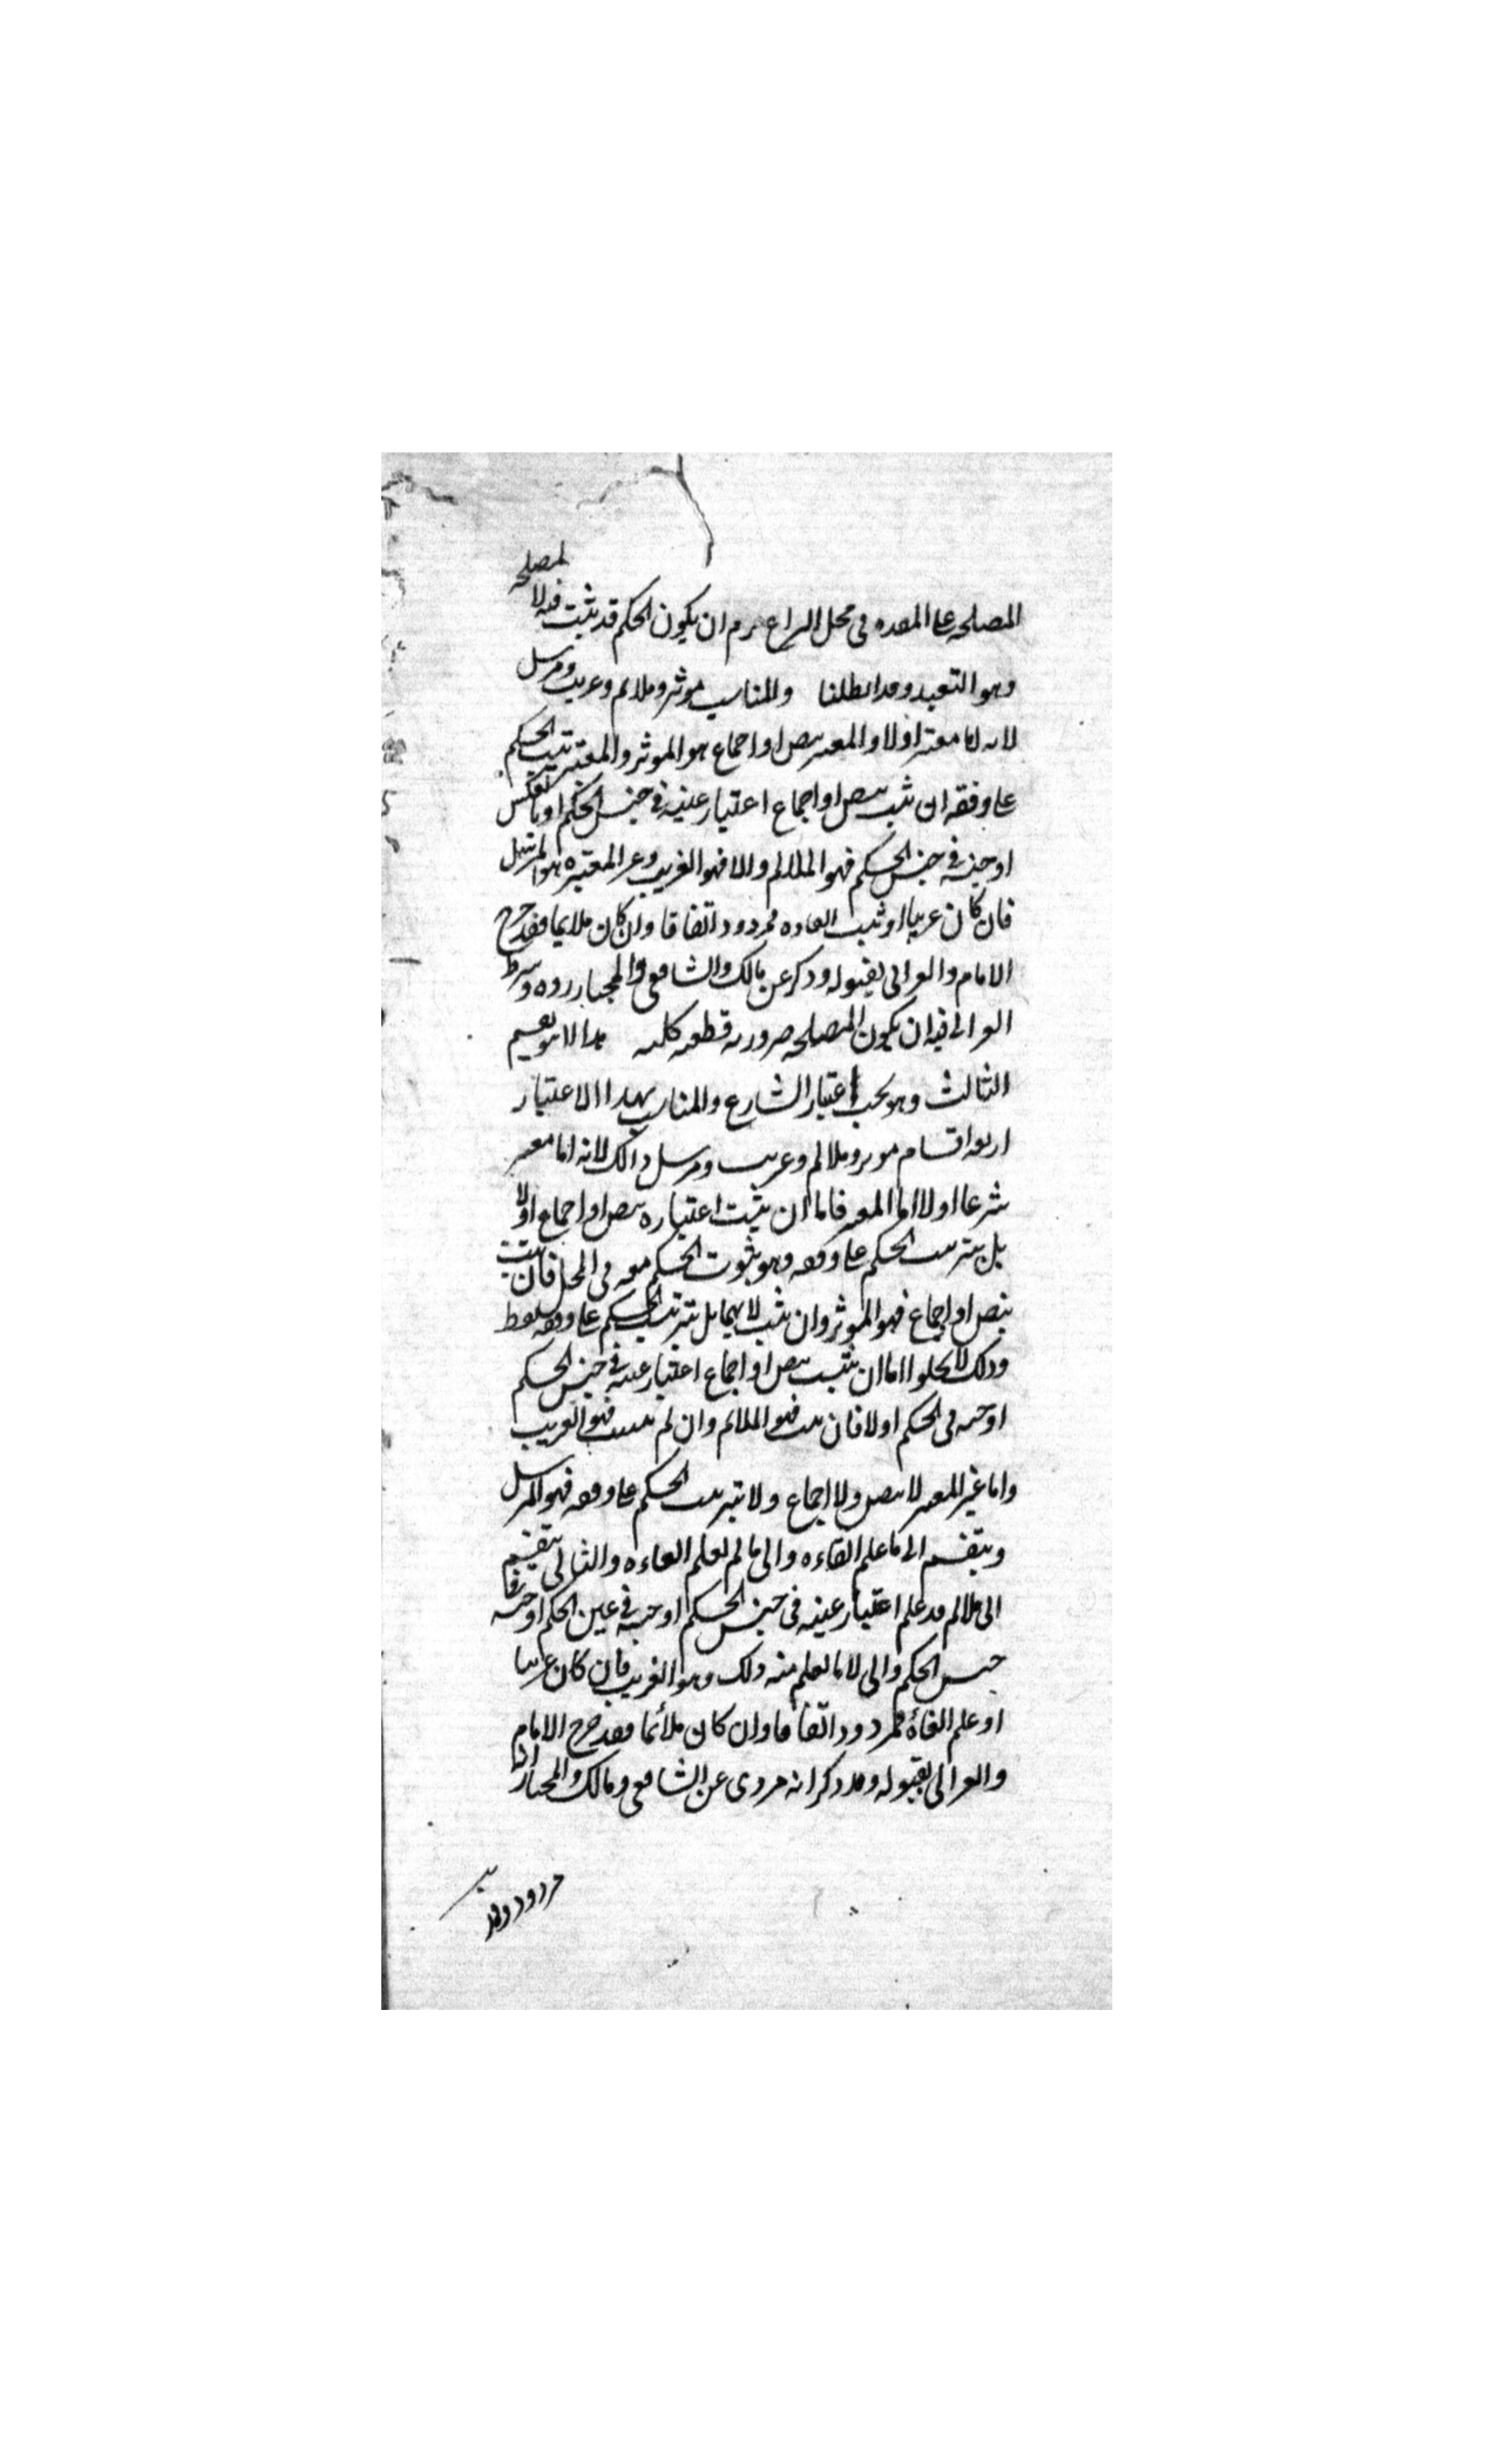 المصلحه على المفسده في محل النزاع لزم ان يكون الحكم قد ثبت فيه لا لمصلحه
وهو التعبد وقد ابطلنا والمناسب موثر وملائم وغريب ومرسل
لانه اما معتبر او لا والمعتبر بنص او اجماع هو الموثر والمعتبر بترتيب الحكم
على وفقه ان ثبت بنص او اجماع اعتبار عينه في جنس الحكم او بالعكس
او جنسه في جنس الحكم فهو الملائم والا فهو الغريب وغير المعتبر هو المرسل
فان كان غريبا او ثبت الغاءه فمردود اتفاقا وان كان ملايما فقد صرح
الامام والغزالي بقبوله وذكر عن مالك والشافعي والمختار رده وشرط
الغزالي فيه ان يكون المصلحه ضروريه قطعيه كليه هذا لا هو تقسيم
الثالث وهو بحسب اعتبار الشارع والمناسب بهذا الاعتبار
اربعه اقسام موثر وملائم وغريب ومرسل وذلك لانه اما معتبر
شرعا اولا اما المعتبر فاما ان يثبت اعتباره بنص او اجماع اولا
بل بترتيب الحكم على وفقه وهو ثبوت الحكم معه في المحل فان ثبت
بنص او اجماع فهو الموثر وان ثبت لا بهما بل بترتيب الحكم على وفقه فقط
وذلك لا يخلوا اما ان يثبت بنص او اجماع اعتبار عينه في جنس الحكم
او جنسه في الحكم اولا فان ثبت فهو الملائم وان لم يثبت فهو الغريب
واما غير المعتبر لا بنص ولا اجماع ولا بترتيب الحكم على وفقه فهو المرسل
وينقسم الى ما علم الغاءه والى ما لم يعلم الغاءه والثاني ينقسم
الى ملائم قد علم اعتبار عينه في جنس الحكم او جنسه في عين الحكم او جنسه في
جنس الحكم والى لا ما يعلم منه ذلك وهو الغريب فان كان غريبا
او علم الغاءه فمردود اتفاقا وان كان ملائما فقد صرح الامام
والغزالي بقبوله وقد ذكر انه مروى عن الشافعي ومالك والمختار انه
مردود وقد